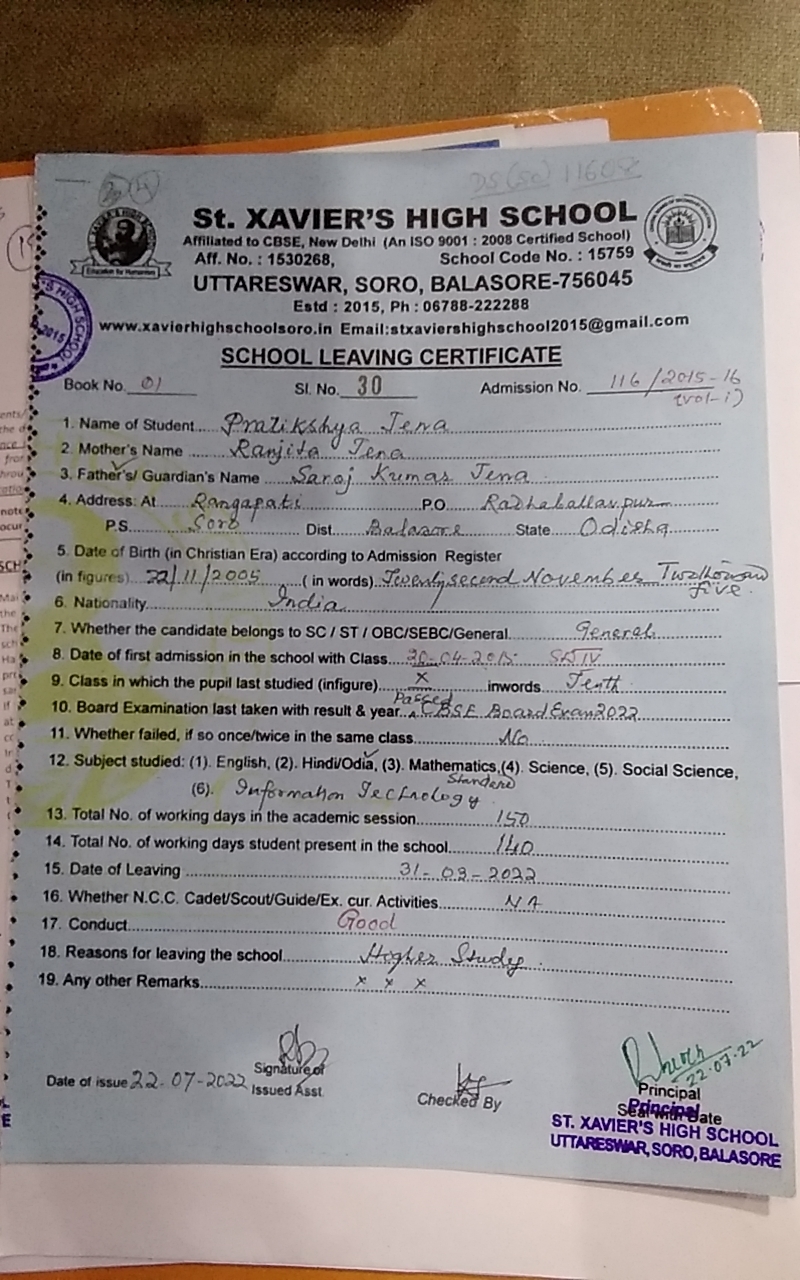 DS(SO) 11608
St. XAVIER'S HIGH SCHOOL
Affiliated to CBSE, New Delhi (An ISO 9001 : 2008 Certified School)
Aff. No. : 1530268, School Code No. : 15759
UTTARESWAR, SORO, BALASORE-756045
Estd : 2015, Ph : 06788-222288
www.xavierhighschoolsoro.in Email:stxaviershighschool2015@gmail.com
SCHOOL LEAVING CERTIFICATE
Book No. 01 Sl. No. 30 Admission No. 116/2015-16
(vol-i)
1. Name of Student.... Pratikshya Jena
2. Mother's Name ....... Ranjita Jena
3. Father's/ Guardian's Name ...... Saroj Kumar Jena
4. Address: At..... Rangapati ..... P.O. Radhaballavpur
P.S. Soro Dist. Balasore State Odisha
5. Date of Birth (in Christian Era) according to Admission Register
(in figures) 22/11/2005 (in words) Twentysecond November Twothousand
five.
6. Nationality India
7. Whether the candidate belongs to SC / ST / OBC/SEBC/General. General
8. Date of first admission in the school with Class 20-04-2015 Std IV
9. Class in which the pupil last studied (infigure) X inwords Tenth
10. Board Examination last taken with result & year Passed CBSE Board Exam 2022
11. Whether failed, if so once/twice in the same class No
12. Subject studied: (1). English, (2). Hindi/Odia, (3). Mathematics,(4). Science, (5). Social Science,
Standerd
(6). Information Technology
13. Total No. of working days in the academic session 150
14. Total No. of working days student present in the school 140
15. Date of Leaving 31-03-2022
16. Whether N.C.C. Cadet/Scout/Guide/Ex. cur. Activities NA
17. Conduct Good
18. Reasons for leaving the school Higher Study
19. Any other Remarks x x x
Date of issue 22.07-2022 Signature of
Issued Asst.
Checked By
22.07.22
Principal
Seal with Date
Principal
ST. XAVIER'S HIGH SCHOOL
UTTARESWAR, SORO, BALASORE